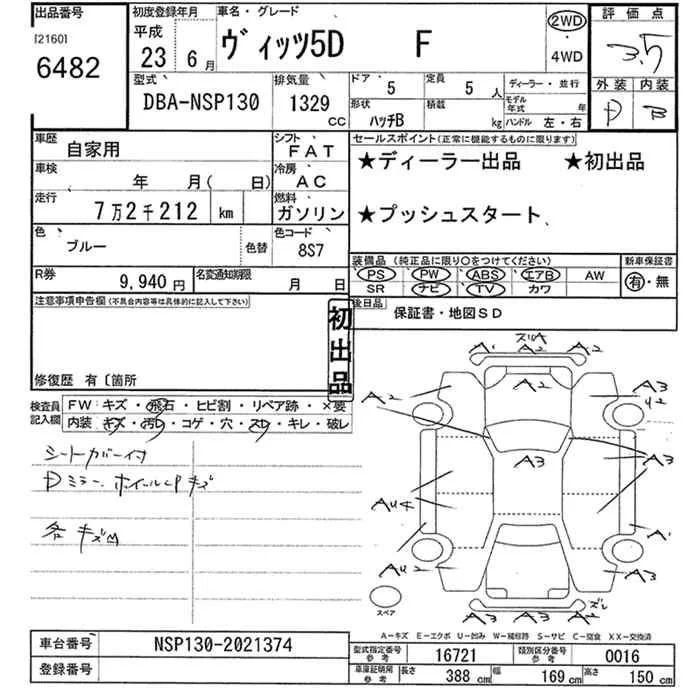 出品番号
[2160]
6482
初度登録年月
平成
23 6月
車名・グレード
ヴィッツ5D F
2WD
・
4WD
評価点
3.5
外装 内装
D B
型式
DBA-NSP130
排気量
1329
cc
ドア 5
定員 5 人
ディーラー・並行
形状 ハッチB
積載 kg
モデル年式 年
ハンドル 左・右
車歴 自家用
シフト FAT
車検 年 月( 日)
冷房 AC
走行 7万2千212 km
燃料 ガソリン
色 ブルー
色替
色コード 8S7
R券 9,940円
名変通知期限 月 日
セールスポイント(正常に機能するものに限ります)
★ディーラー出品 ★初出品
★プッシュスタート
装備品 (純正品に限り○をつけてください)
新車保証書
PS PW ABS エアB AW
SR ナビ TV カワ
有・無
後日品 保証書・地図SD
注意事項申告欄(不具合内容等は具体的に記入して下さい)
初出品
修復歴 有〔箇所
検査員記入欄
FW:キズ・飛石・ヒビ割・リペア跡・×要
内装:キズ・汚レ・コゲ・穴・スレ・キレ・破レ
シートカバー付
Dミラー、ホイールCPキズ
各キズM
スリA
A1 A2 A2
A2
A3
U2
A3
A3
AU4
A1
AU2
A3
A2
A2 A2 A2
スレ
スペア
A-キズ E-エクボ U-凹み W-補修跡 S-サビ C-腐食 XX-交換済
車台番号 NSP130-2021374
登録番号
型式指定番号 参考 16721
類別区分番号 参考 0016
車庫証明用 参考 長さ 388 cm 幅 169 cm 高さ 150 cm